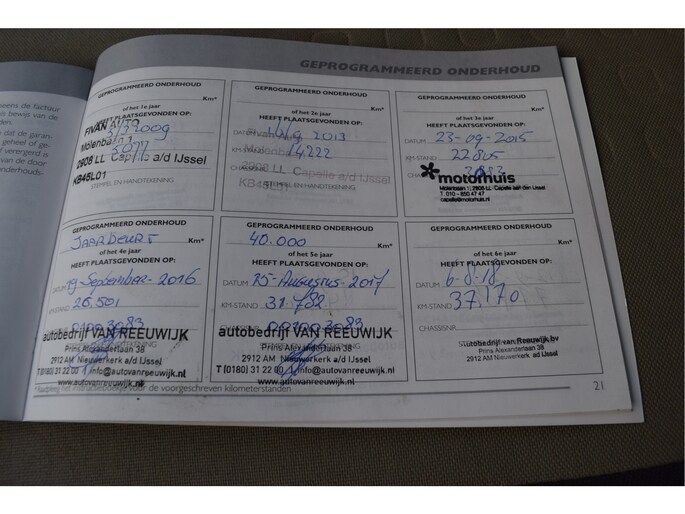 GEPROGRAMMEERD ONDERHOUD
eens de factuur
bewijs van de
dat de garan-
geheel of ge-
verergend is
van de door
onderhouds-
GEPROGRAMMEERD ONDERHOUD
Km*
of het 1e jaar
HEEFT PLAATSGEVONDEN OP:
FIVAN AUTO
Molenbaan 1
2908 LL Capelle a/d IJssel
KB45L01
STEMPEL EN HANDTEKENING
GEPROGRAMMEERD ONDERHOUD
Km*
of het 2e jaar
HEEFT PLAATSGEVONDEN OP:
DATUM 2013
14222
2908 LL Capelle a/d IJssel
KB45L01
STEMPEL EN HANDTEKENING
GEPROGRAMMEERD ONDERHOUD
Km*
of het 3e jaar
HEEFT PLAATSGEVONDEN OP:
DATUM 23-09-2015
KM-STAND 22805
motorhuis
Molenbaan 1, 2908 LL Capelle aan den IJssel
T. 010 - 850 47 47
capelle@motorhuis.nl
GEPROGRAMMEERD ONDERHOUD
JAARBEURT Km*
of het 4e jaar
HEEFT PLAATSGEVONDEN OP:
DATUM 19-September-2016
KM-STAND 26.501
autobedrijf VAN REEUWIJK
Prins Alexanderlaan 38
2912 AM Nieuwerkerk a/d IJssel
T (0180) 31 22 00 | info@autovanreeuwijk.nl
www.autovanreeuwijk.nl
GEPROGRAMMEERD ONDERHOUD
40.000 Km*
of het 5e jaar
HEEFT PLAATSGEVONDEN OP:
DATUM 15-Augustus-2017
KM-STAND 31.782
autobedrijf VAN REEUWIJK
Prins Alexanderlaan 38
2912 AM Nieuwerkerk a/d IJssel
T (0180) 31 22 00 | info@autovanreeuwijk.nl
www.autovanreeuwijk.nl
GEPROGRAMMEERD ONDERHOUD
Km*
of het 6e jaar
HEEFT PLAATSGEVONDEN OP:
DATUM 6-8-18
KM-STAND 37.170
CHASSISNR.
autobedrijf van Reeuwijk bv
Prins Alexanderlaan 38
2912 AM Nieuwerkerk a/d IJssel
*Raadpleeg het instructieboekje voor de voorgeschreven kilometerstanden
21